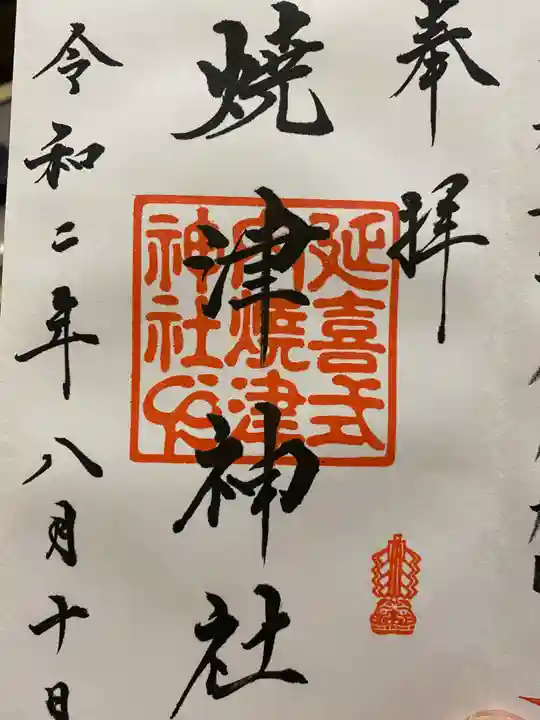 奉拝
延喜式
内焼津
神社印
燒津神社
令和二年八月十日